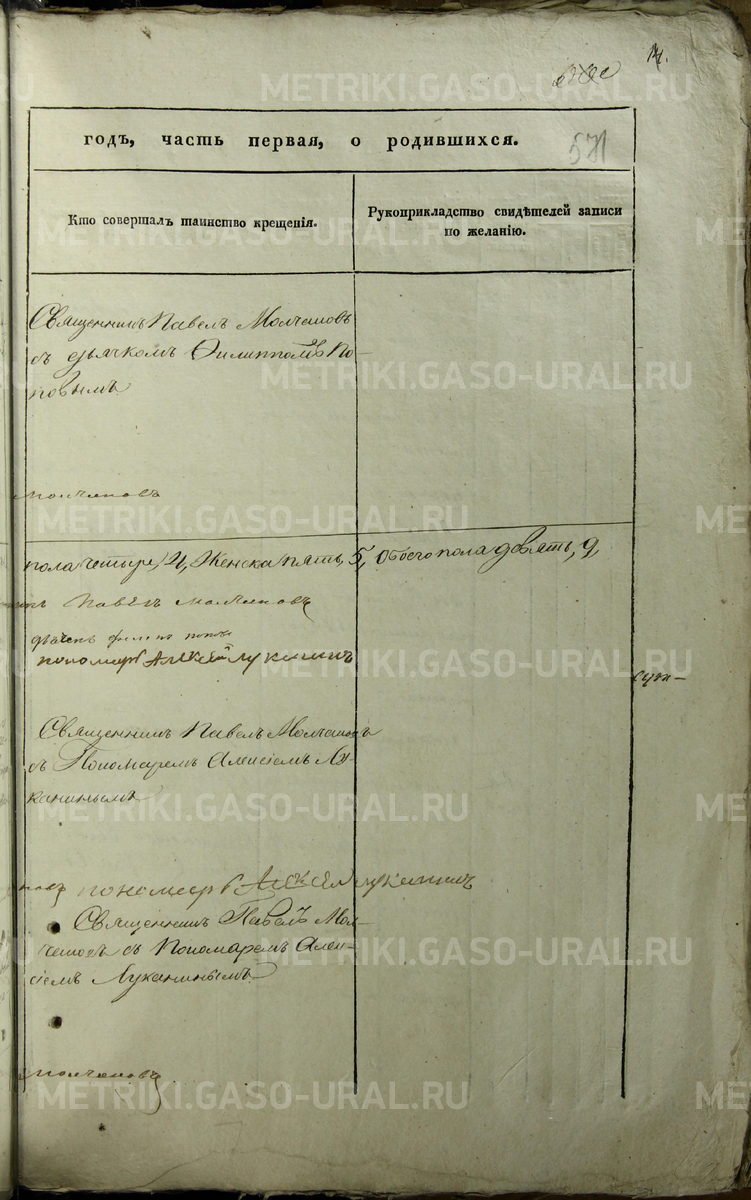 14.
571
годъ, часть первая, о родившихся.
Кто совершалъ таинство крещенія.
Рукоприкладство свидѣтелей записи
по желанію.
Священникъ Павелъ Молчановъ
съ дьячкомъ Филиппомъ По-
повымъ
Молчановъ
пола четыре, 4, Женска пять, 5, Обоего пола девять, 9,
Павелъ Молчановъ
дьячек филип попов
пономарь Алексей Луканинъ
Священникъ Павелъ Молчановъ
съ Пономаремъ Алексіемъ Лу-
канинымъ
пономарь Алексей Луканинъ
Священникъ Павелъ Мол-
чановъ съ Пономаремъ Алек-
сіемъ Луканинымъ
Молчановъ
METRIKI.GASO-URAL.RU